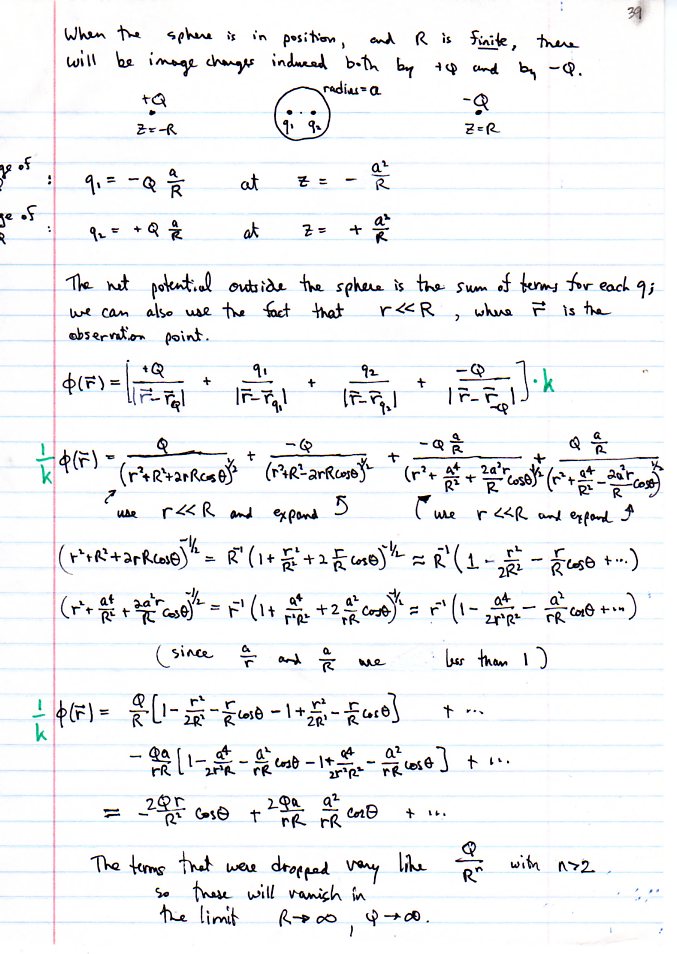 39
When the sphere is in position, and R is finite, there
will be image charges induced both by +Q and by -Q.
+Q radius=a -Q
z=-R q₁ q₂ z=R
ge of : q₁ = -Q a/R at z = - a²/R
ge of : q₂ = +Q a/R at z = + a²/R
The net potential outside the sphere is the sum of terms for each q;
we can also use the fact that r<<R, where r⃗ is the
observation point.
ϕ(r⃗) = [+Q/|r⃗-r⃗_Q| + q₁/|r⃗-r⃗_q₁| + q₂/|r⃗-r⃗_q₂| + -Q/|r⃗-r⃗_-Q|]·k
1/k ϕ(r⃗) = Q/(r²+R²+2rRcosθ)^½ + -Q/(r²+R²-2rRcosθ)^½ + -Q a/R/(r²+a⁴/R²+2a²r/R cosθ)^½ + Q a/R/(r²+a⁴/R²-2a²r/R cosθ)^½
use r<<R and expand (use r<<R and expand
(r²+R²+2rRcosθ)^-1/2 = R⁻¹(1+r²/R²+2 r/R cosθ)^-1/2 ≈ R⁻¹(1 - r²/2R² - r/R cosθ + ...)
(r²+a⁴/R²+2a²r/R cosθ)^-1/2 = r⁻¹(1+a⁴/r²R²+2 a²/rR cosθ)^-1/2 ≈ r⁻¹(1 - a⁴/2r²R² - a²/rR cosθ + ...)
(since a/r and a/R are less than 1)
1/k ϕ(r⃗) = Q/R [1 - r²/2R² - r/R cosθ - 1 + r²/2R² - r/R cosθ] + ...
- Qa/rR [1 - a⁴/2r²R - a²/rR cosθ - 1 + a⁴/2r²R² - a²/rR cosθ] + ...
= -2Qr/R² cosθ + 2Qa/rR a²/rR cosθ + ...
The terms that were dropped vary like Q/Rⁿ with n>2
so these will vanish in
the limit R→∞, Q→∞.